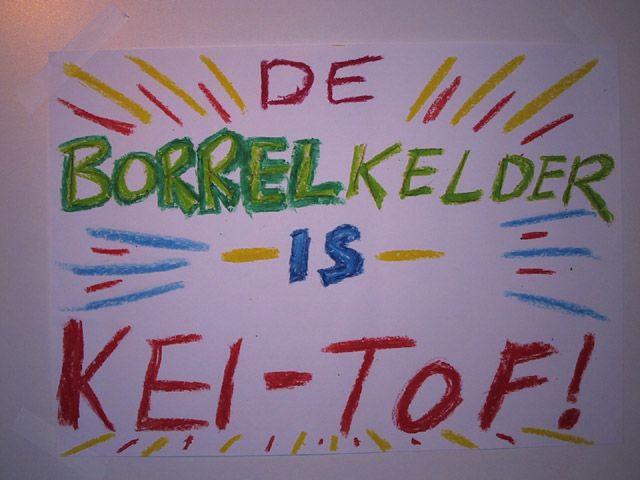 DE
BORRELKELDER
IS
KEI-TOF!